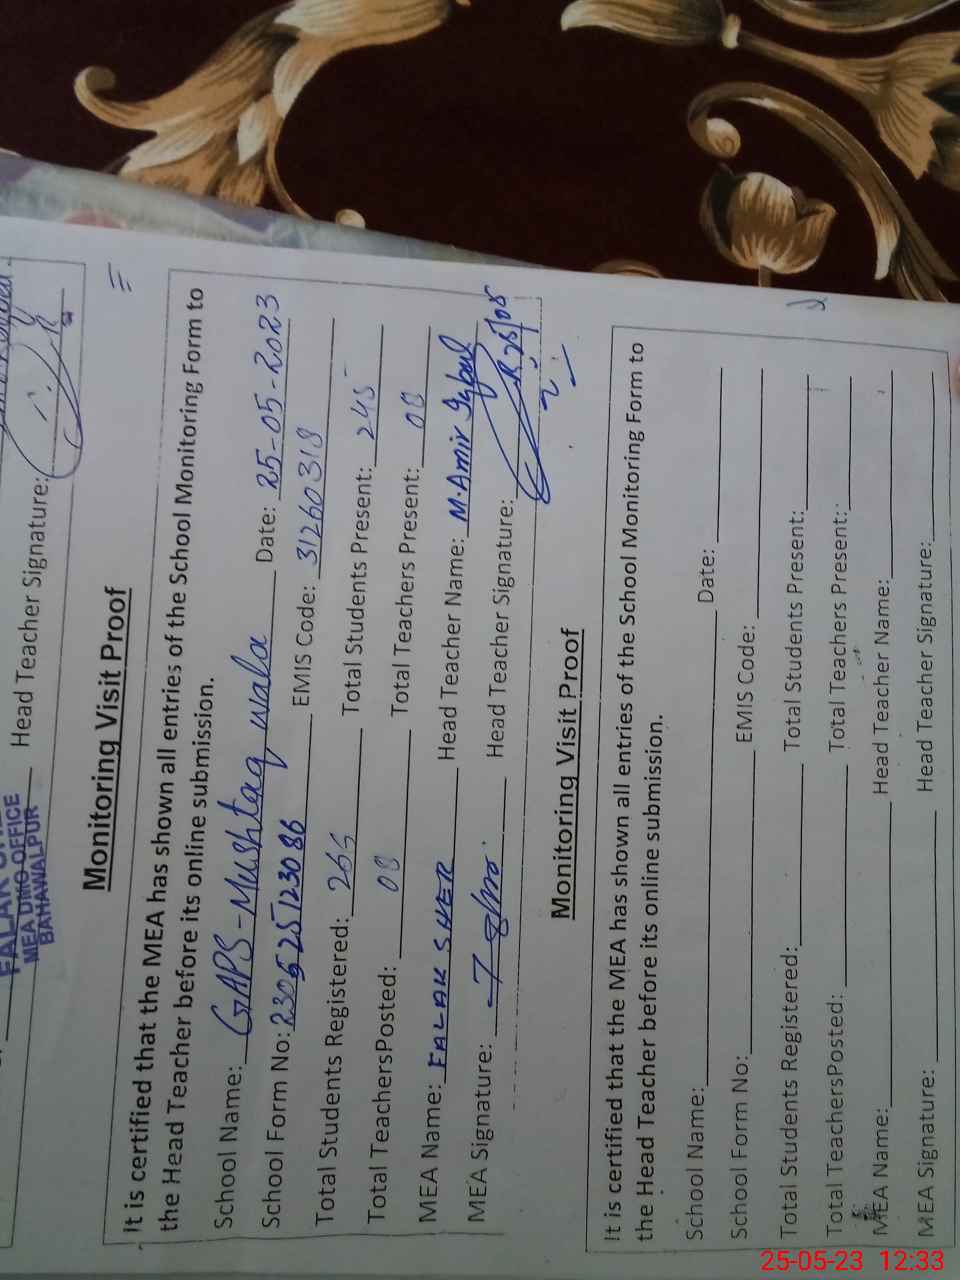 Head Teacher Signature:
MEA DMO OFFICE
BAHAWALPUR
Monitoring Visit Proof
It is certified that the MEA has shown all entries of the School Monitoring Form to
the Head Teacher before its online submission.
School Name: GAPS-Mushtaq wala Date: 25-05-2023
School Form No: 230525123086 EMIS Code: 31260318
Total Students Registered: Total Students Present: 245
Total TeachersPosted: 08 Total Teachers Present: 08
MEA Name: FALAK SHER Head Teacher Name: M.Amir Iqbal
MEA Signature: Head Teacher Signature:
Monitoring Visit Proof
It is certified that the MEA has shown all entries of the School Monitoring Form to
the Head Teacher before its online submission.
School Name: Date:
School Form No: EMIS Code:
Total Students Registered: Total Students Present:
Total TeachersPosted: Total Teachers Present:
MEA Name: Head Teacher Name:
MEA Signature: Head Teacher Signature:
25-05-23 12:33